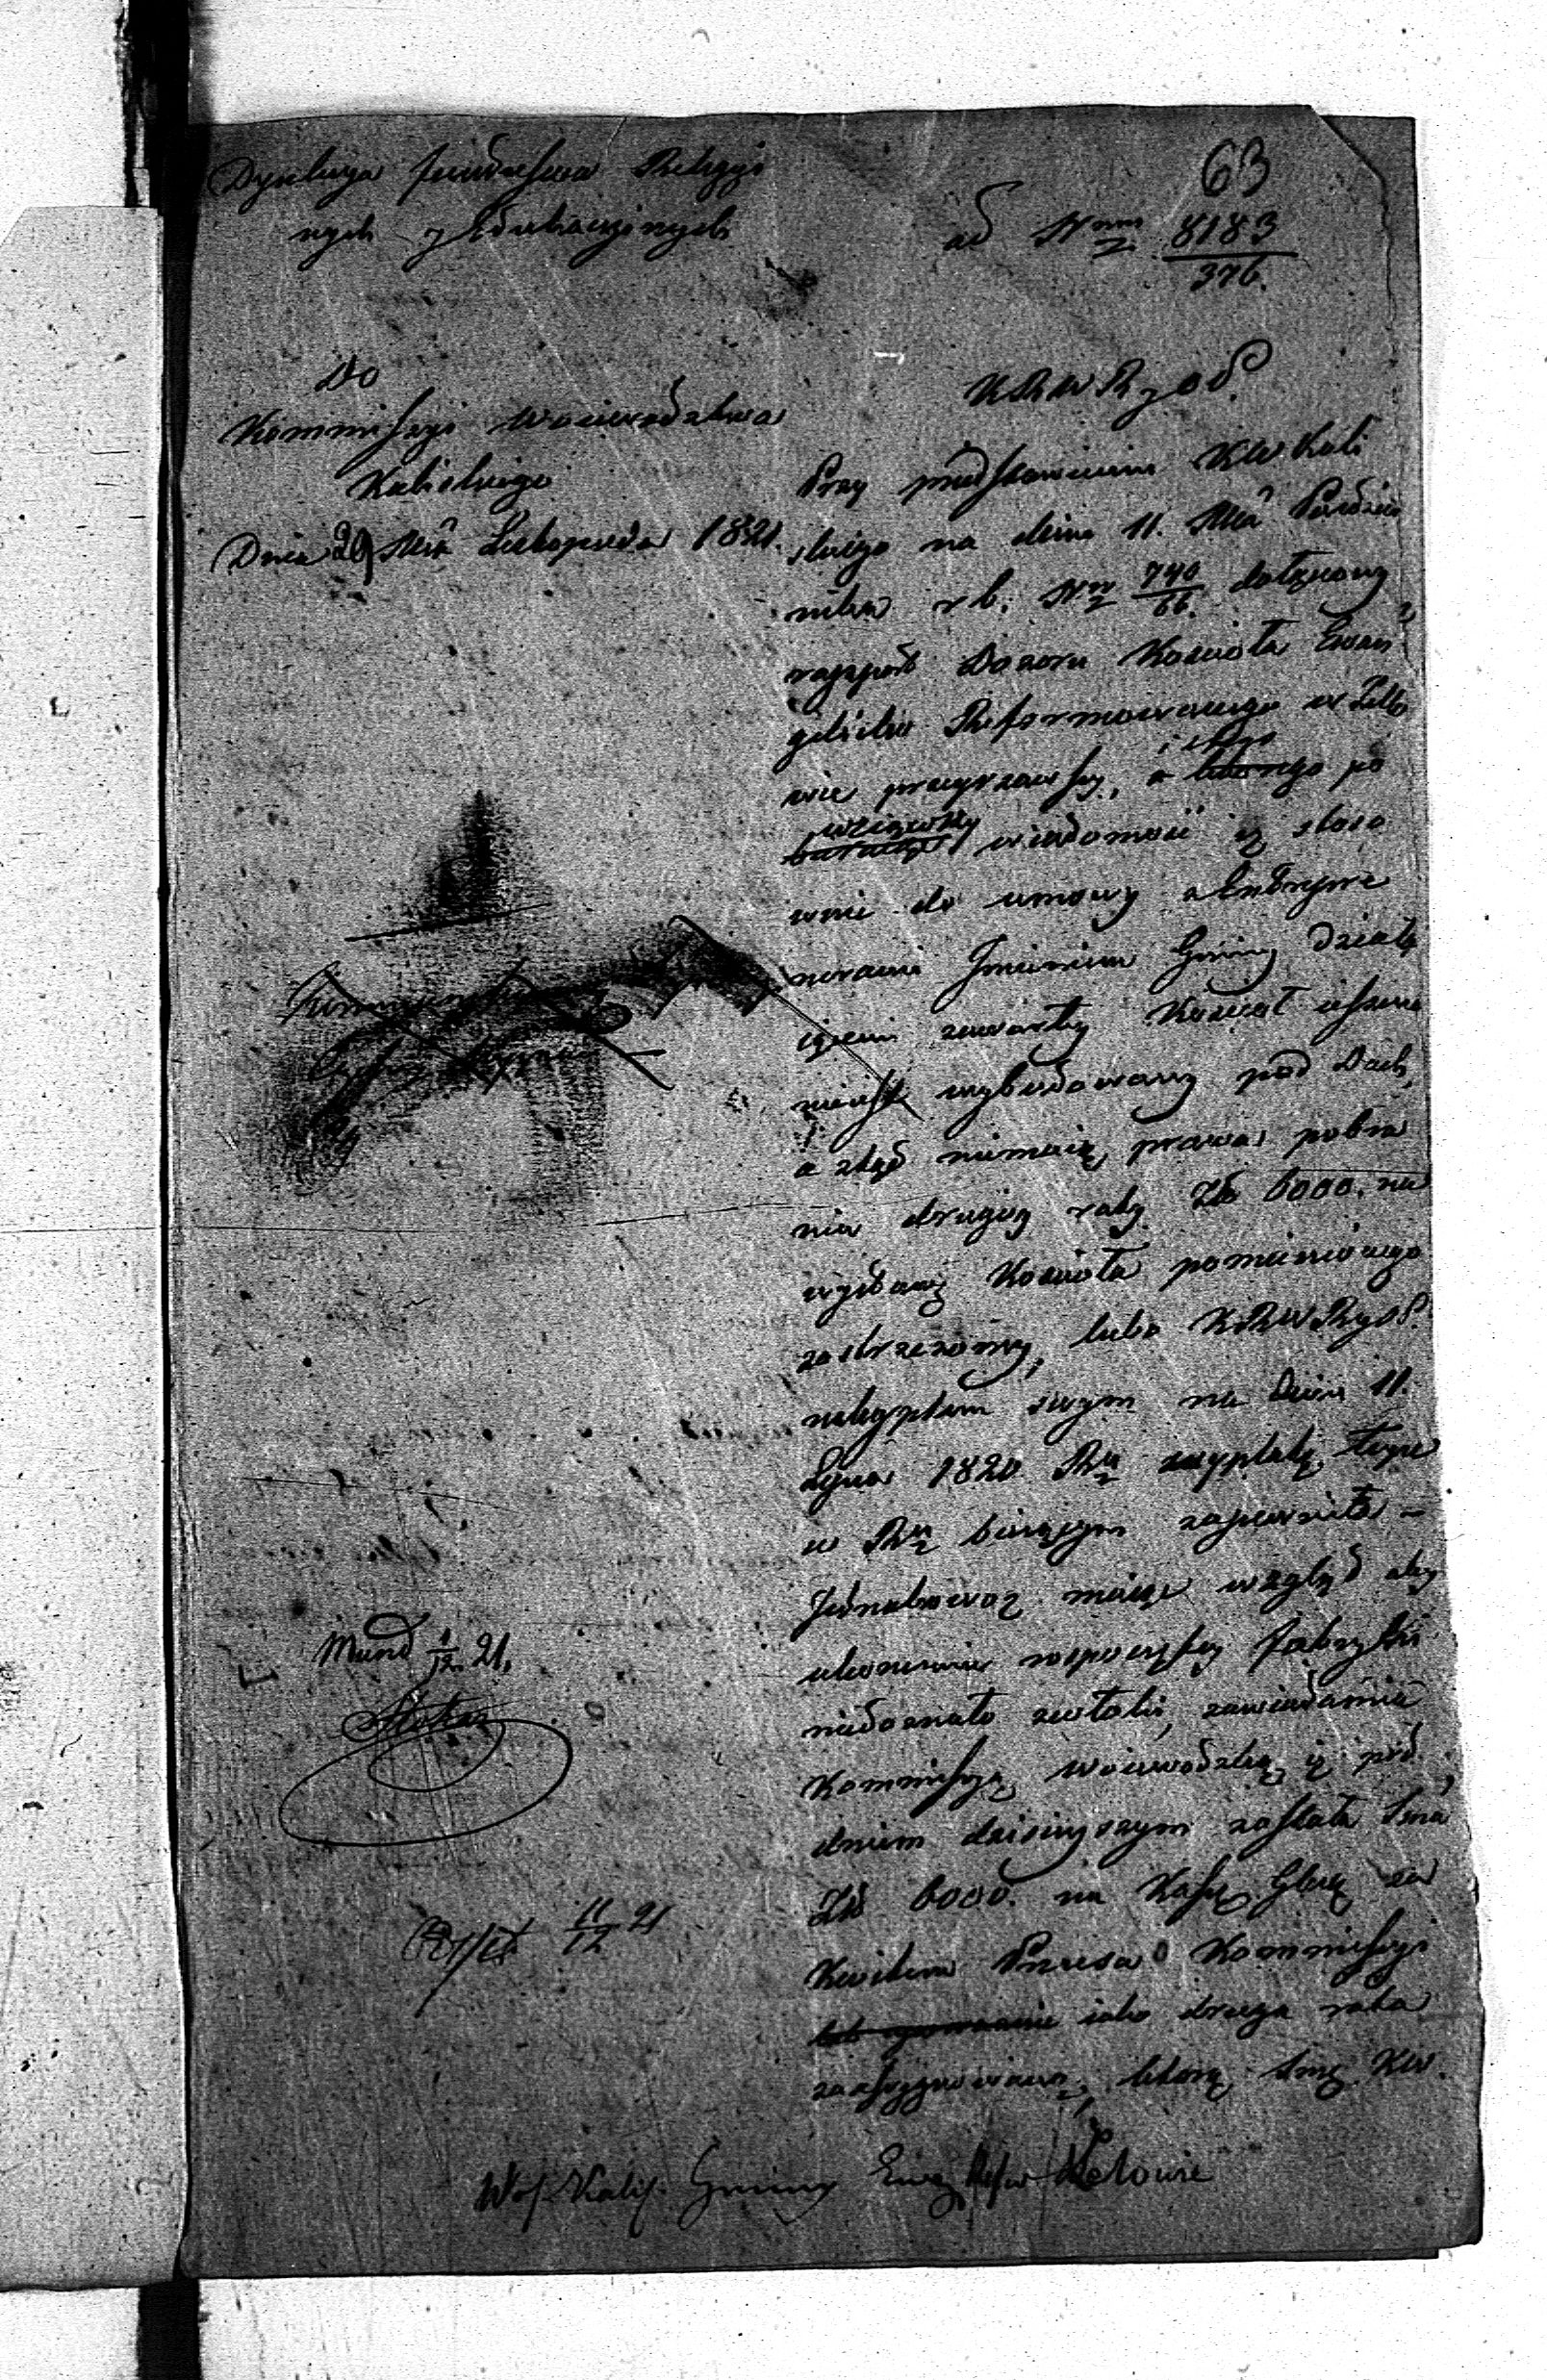 63
Dyrekcya funduszów Religyi
nych y Edukacyinych
ad Nrum 8183/376.
Do
Kommissyi Woiewodztwa
Kaliskiego
Dnia 29 Mca Listopada 1821.
KRWRyOP.
Przy przedstawieniu KW Kali
skiego na dniu 11. Mca Paździer
nika r. b. Nro 740/66. dołączony
rapport Dozoru Kościoła Ewan
gelicko Reformowanego w Zelo
wie przeyrzawszy, z którego po
wziąwszy wiadomość iż stoso
wnie do umowy z Entrepre
nerami Imieniem Gminy
zawarty Kościoł ieszcze
nieiest wybudowany pod Dach,
a ztąd niemaią prawa pobra
nia drugiey raty Złł 6000. na
Kościoła pomienionego
zastrzeżoney, lubo KRWRyOP.
reskryptem swym na dniu 11.
Lipca 1820 Ru wypłatę teyże
w Ru bieżącym zapewniła –
Jednakowoż maiąc wzgląd aby
ukończenie rozpoczętey fabryki
niedoznało zwłoki, zawiadamia
Kommissyą Woiewodzką iż pod
dniem dzisieyszym została Sma
Złł 6000. na Kassę Główną za
Kwitem Prezesa Kommissyi
iako druga rata
zaassygnowana, którą Smę KW.
Mund 1/12 21.
11/12 21
Woj. Kalis. Gminy Ewag. Ref. w Zelowie